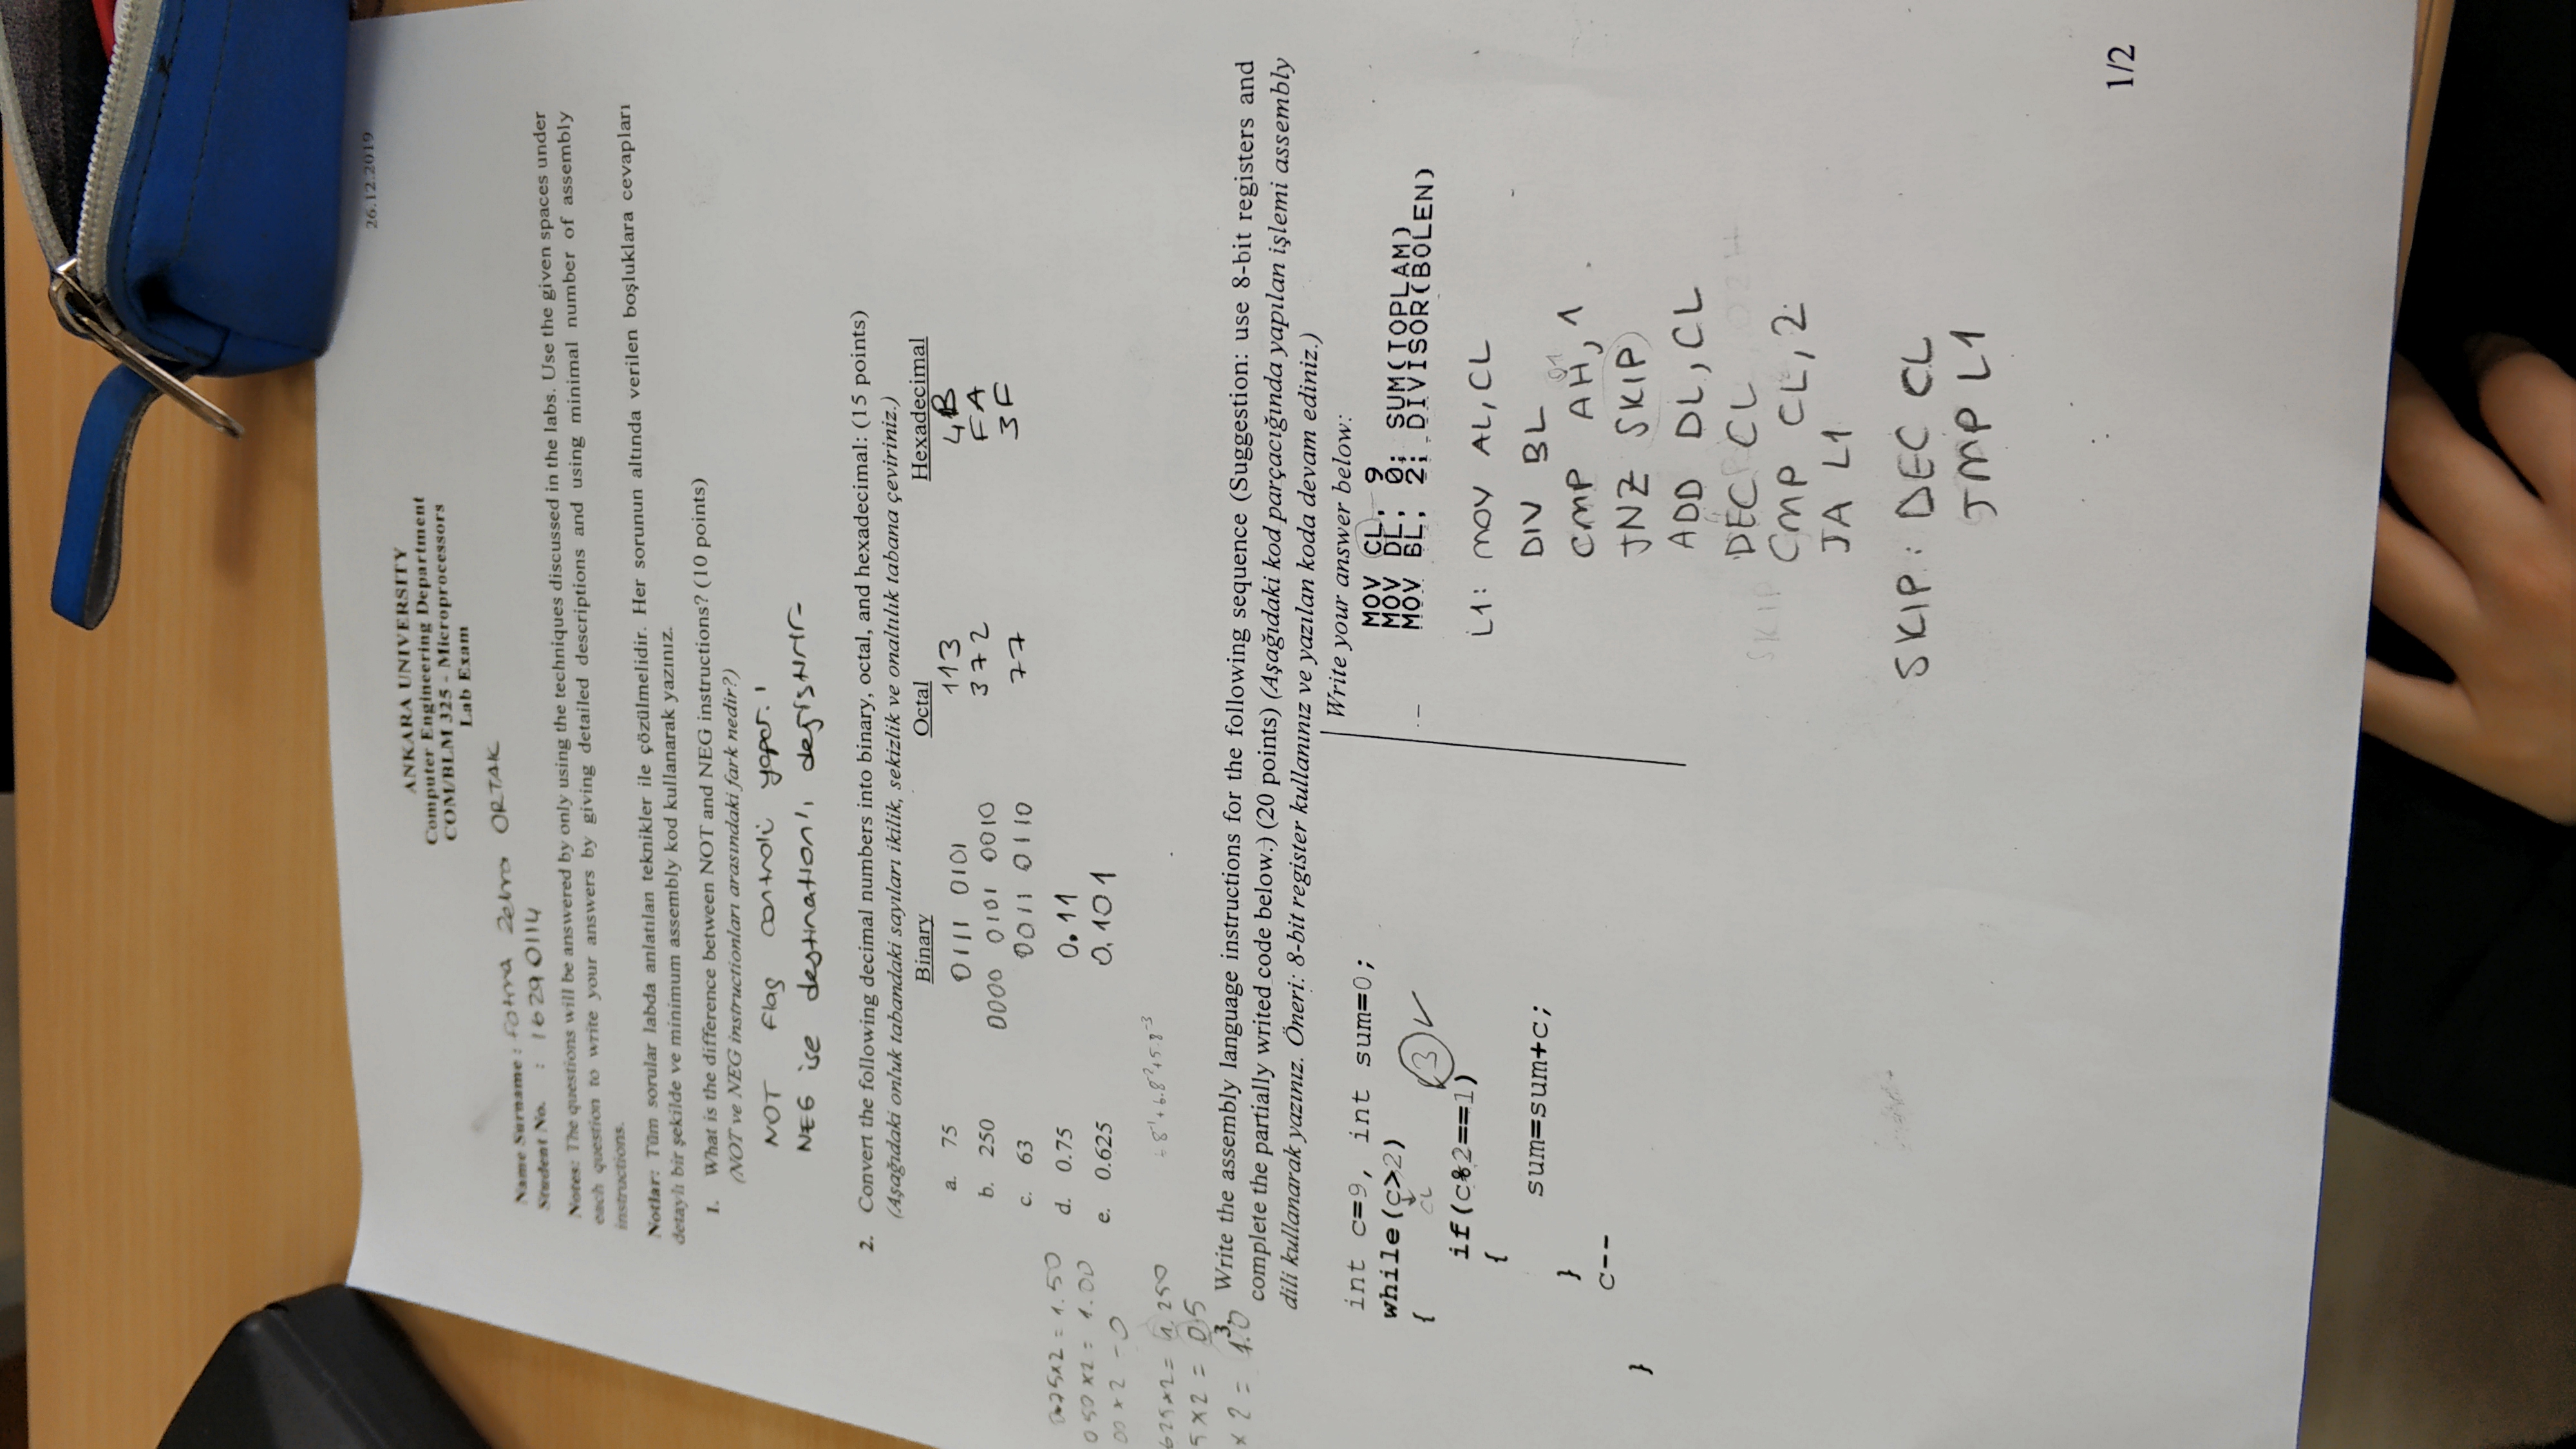 26.12.2019
ANKARA UNIVERSITY
Computer Engineering Department
COM/BLM 325 - Microprocessors
Lab Exam
Name Surname : Fatma Zehra ORTAK
Student No. : 16290114
Notes: The questions will be answered by only using the techniques discussed in the labs. Use the given spaces under
each question to write your answers by giving detailed descriptions and using minimal number of assembly
instructions.
Notlar: Tüm sorular labda anlatılan teknikler ile çözülmelidir. Her sorunun altında verilen boşluklara cevapları
detaylı bir şekilde ve minimum assembly kod kullanarak yazınız.
1. What is the difference between NOT and NEG instructions? (10 points)
(NOT ve NEG instructionları arasındaki fark nedir?)
NOT Flag controlü yapar.
NEG ise destination'ı değiştirir
2. Convert the following decimal numbers into binary, octal, and hexadecimal: (15 points)
(Aşağıdaki onluk tabandaki sayıları ikilik, sekizlik ve onaltılık tabana çeviriniz.)
Binary Octal Hexadecimal
a. 75 0111 0101 113 4B
b. 250 0000 0101 0010 372 FA
c. 63 0011 0110 77 3F
d. 0.75 0.11
e. 0.625 0.101
0.75x2 = 1.50
050 x2 = 1.00
00 x 2 - 0
625x2 = 1.250
5 x 2 = 0.5
x 2 = 1.0
3. Write the assembly language instructions for the following sequence (Suggestion: use 8-bit registers and
complete the partially writed code below.) (20 points) (Aşağıdaki kod parçacığında yapılan işlemi assembly
dili kullanarak yazınız. Öneri: 8-bit register kullanınız ve yazılan koda devam ediniz.)
int c=9, int sum=0;
while(c>2)
{
CL
3
if(c%2==1)
{
sum=sum+c;
}
c--
}
Write your answer below:
MOV CL, 9
MOV DL, 0; SUM(TOPLAM)
MOV BL, 2; DIVISOR(BOLEN)
L1: mov AL, CL
DIV BL
01
CMP AH, 1
JNZ SKIP
ADD DL, CL
DEC CL
SKIP
CMP CL, 2
JA L1
SKIP: DEC CL
JMP L1
1/2